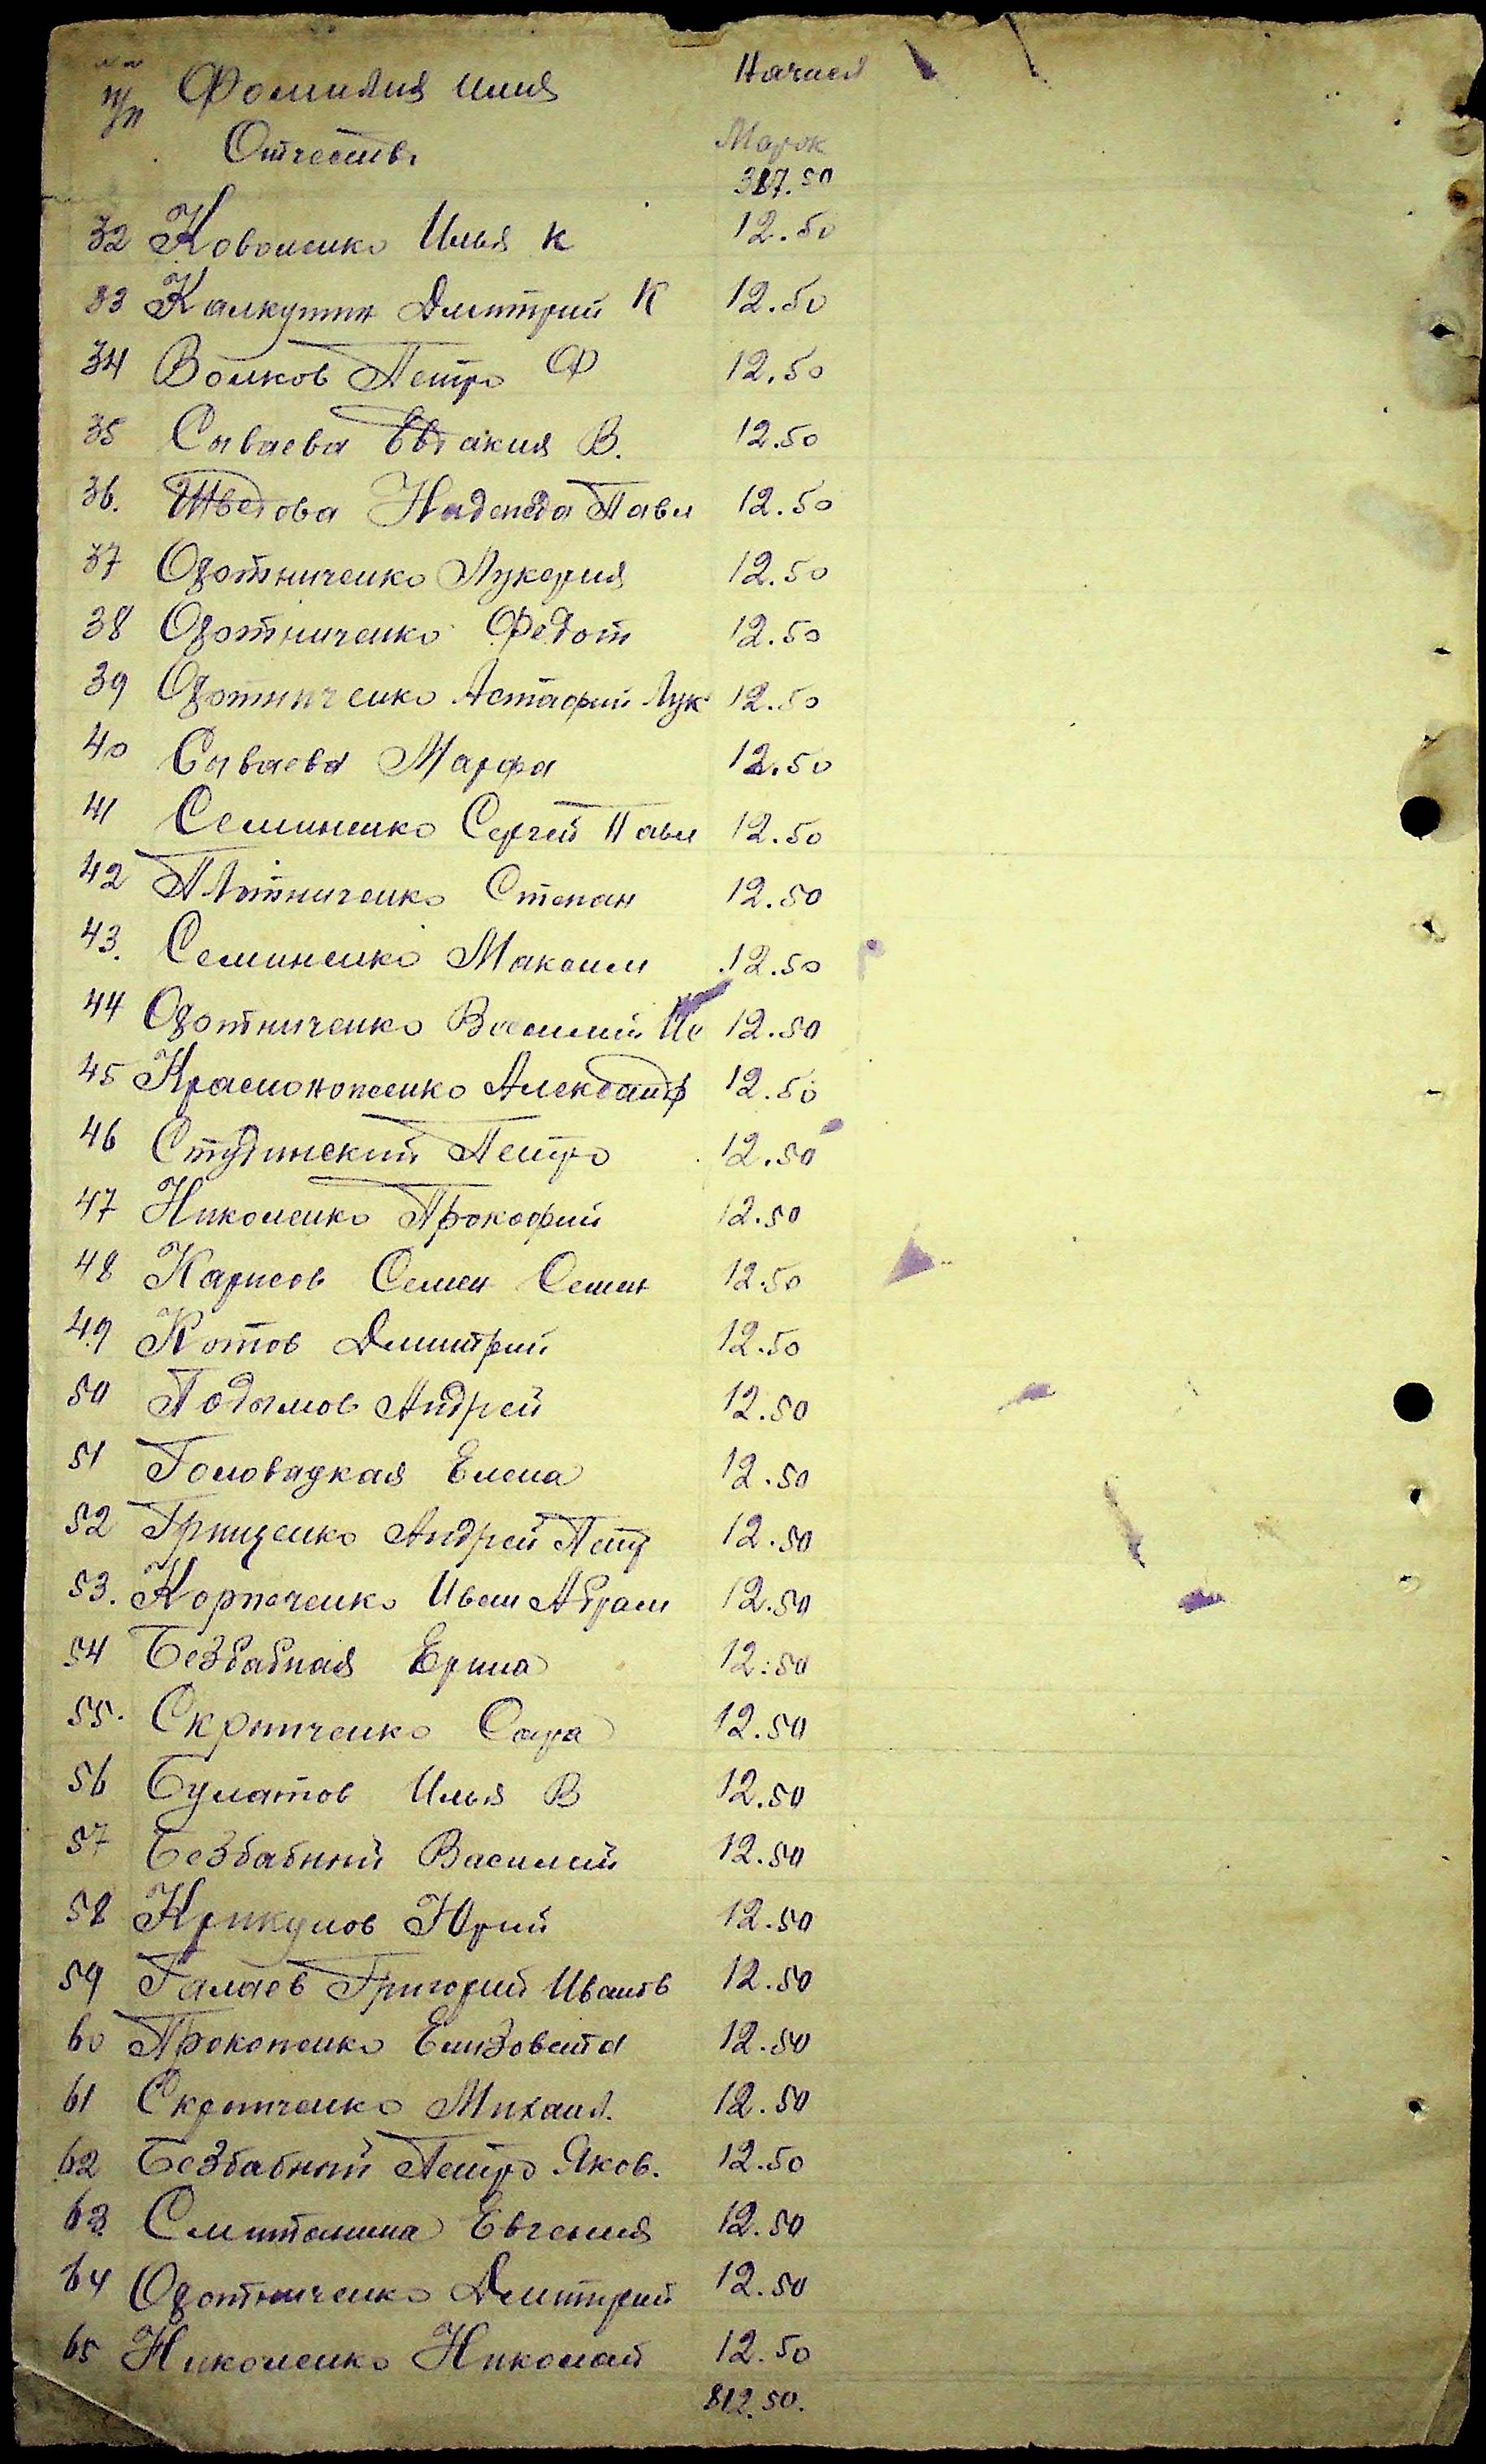 №№ п/п Фомилия имия Начисл
Отчество Марок
387.50
32 Коволенко Илья К 12.50
33 Калкутин Дмитрий К 12.50
34 Волков Петро Ф 12.50
35 Сываева Евдакия В. 12.50
36. Шведова Надежда Павл 12.50
37 Охотниченко Лукерия 12.50
38 Охотниченко Федот 12.50
39 Охотниченко Астафий Лук 12.50
40 Сываева Марфа 12.50
41 Семиненко Сергей Павл 12.50
42 Плотниченко Степан 12.50
43. Семиненко Максим 12.50
44 Охотниченко Василий Ис 12.50
45 Красноноженко Александр 12.50
46 Студинский Петро 12.50
47 Николенко Прокофий 12.50
48 Карпсов Семен Семен 12.50
49 Котов Дмитрий 12.50
50 Подымов Андрей 12.50
51 Головацкая Елена 12.50
52 Гриценко Андрей Петр 12.50
53. Корпаченко Иван Абрам 12.50
54 Безбабная Ерина 12.50
55. Скрыпченко Сара 12.50
56 Булатов Илья В 12.50
57 Безбабный Василий 12.50
58 Крикунов Юрий 12.50
59 Галаев Григорий Иванов 12.50
60 Прокопенко Елизовета 12.50
61 Скрыпченко Михаил. 12.50
62 Безбабный Петро Яков. 12.50
63 Смитанина Евгения 12.50
64 Охотниченко Дмитрий 12.50
65 Николенко Николай 12.50
812.50.